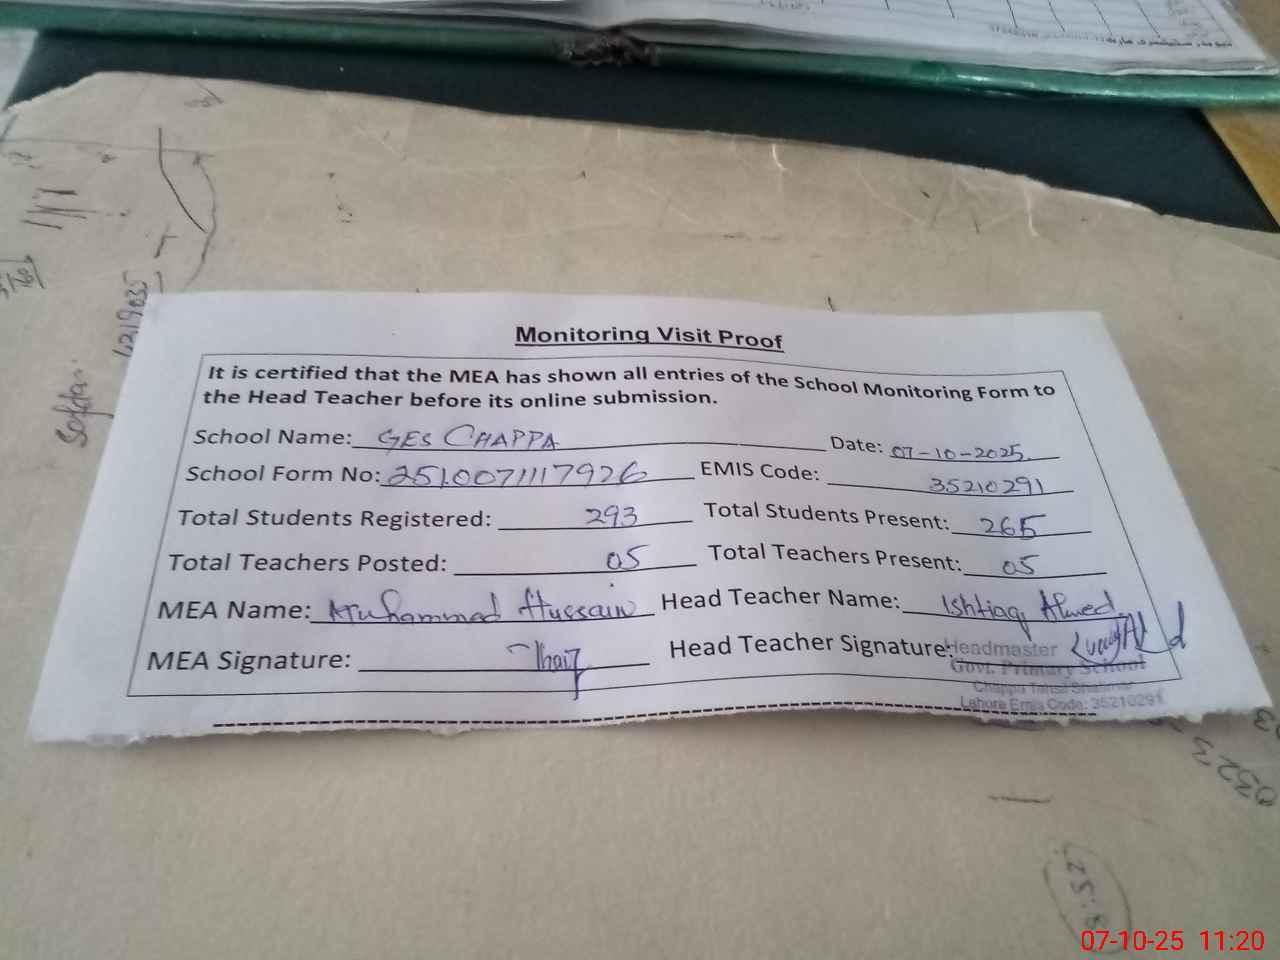 Monitoring Visit Proof
It is certified that the MEA has shown all entries of the School Monitoring Form to
the Head Teacher before its online submission.
School Name: GES CHAPPA Date: 07-10-2025.
School Form No: 2510071117926 EMIS Code: 35210291
Total Students Registered: 293 Total Students Present: 265
Total Teachers Posted: 05 Total Teachers Present: 05
MEA Name: Muhammad Hussain Head Teacher Name: Ishtiaq Ahmed
MEA Signature: Head Teacher Signature:
Headmaster
Govt. Primary School
Chappa Tehsil Shalimar
Lahore Emis Code: 35210291
07-10-25 11:20